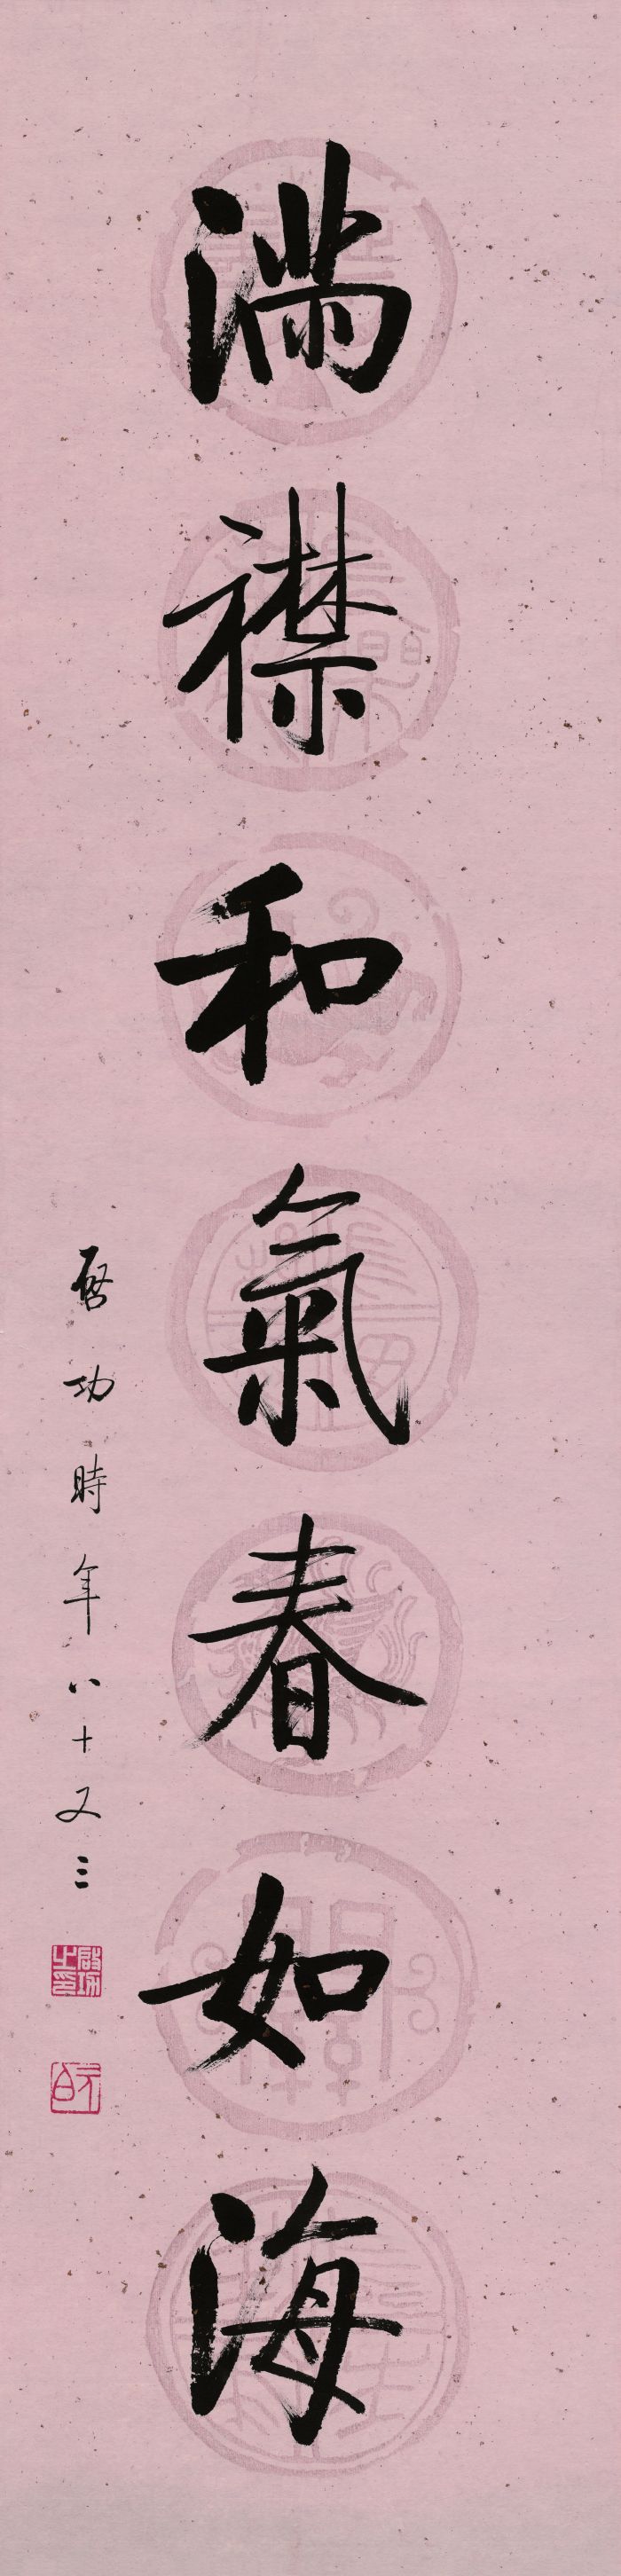 滿襟和氣春如海
啓功時年八十又三
啟功之印
元白